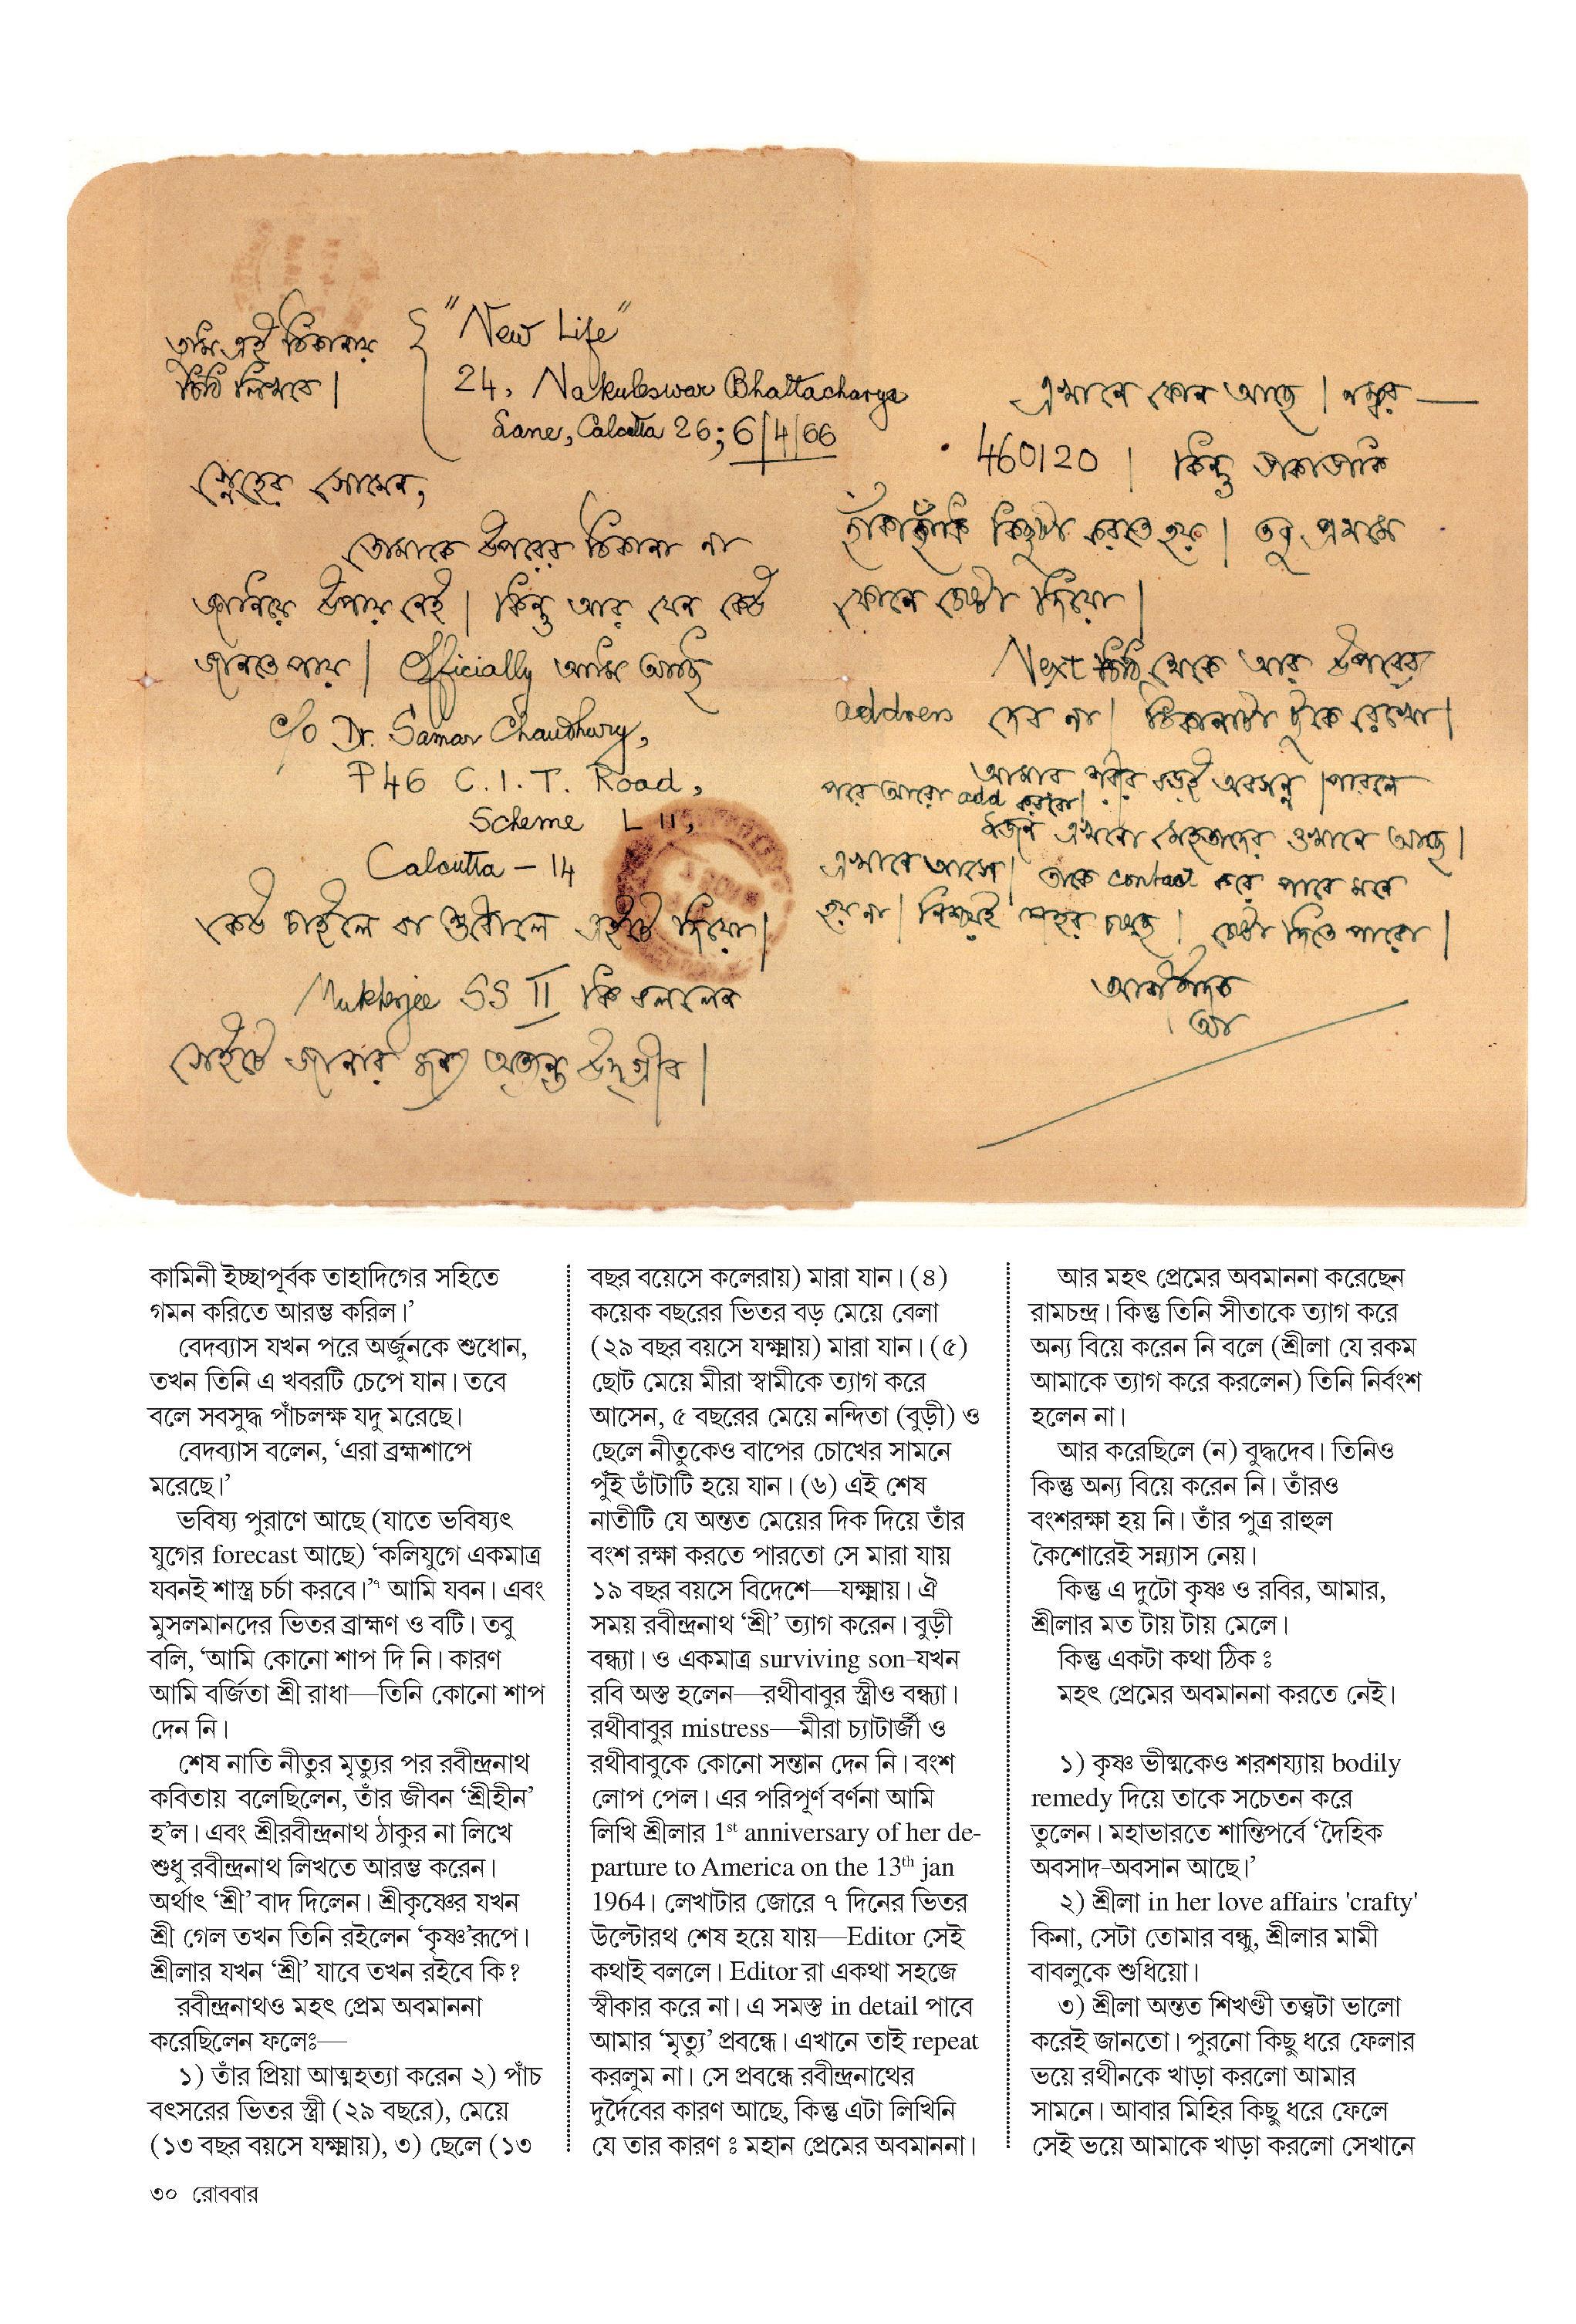 তুমি এই ঠিকানায়
চিঠি লিখবে।
"New Life"
24, Nakuleswar Bhattacharya
Lane, Calcutta 26; 6/4/66
স্নেহের সোমেন,
তোমাকে উপরের ঠিকানা না
জানিয়ে উপায় নেই। কিন্তু আর যেন কেউ
জানতে পায়। Officially আমি আছি
c/o Dr. Samar Chaudhury,
P46 C.I.T. Road,
Scheme L II,
Calcutta – 14
কেউ চাইলে বা শুধোলে এইটে দিয়ো।
Mukherjee SS II কি বললেন
সেইটে জানার জন্য অত্যন্ত উদ্‌গ্রীব।
এখানে ফোন আছে। নম্বর —
460120। কিন্তু ডাকাডাকি
হাঁকাহাঁকি কিছুটা করতে হয়। তবু প্রথমে
ফোনে চেষ্টা দিয়ো।
Next চিঠি থেকে আর উপরের
address দেব না। ঠিকানাটা টুকে রেখো।
আমার শরীর বড়ই অবসন্ন। পারলে
পরে আরো add করবো।
এখনো মেহতাদের ওখানে আছে।
এখানে আসে। তাকে contact করে পাবে মনে
হয় না। নিশ্চয়ই শহর চষছে। চেষ্টা দিতে পারো।
আশীর্বাদক
আ
কামিনী ইচ্ছাপূর্বক তাহাদিগের সহিতে
গমন করিতে আরম্ভ করিল।’
বেদব্যাস যখন পরে অর্জুনকে শুধোন,
তখন তিনি এ খবরটি চেপে যান। তবে
বলে সবসুদ্ধ পাঁচলক্ষ যদু মরেছে।
বেদব্যাস বলেন, ‘এরা ব্রহ্মশাপে
মরেছে।’
ভবিষ্য পুরাণে আছে (যাতে ভবিষ্যৎ
যুগের forecast আছে) ‘কলিযুগে একমাত্র
যবনই শাস্ত্র চর্চা করবে।’৭ আমি যবন। এবং
মুসলমানদের ভিতর ব্রাহ্মণ ও বটি। তবু
বলি, ‘আমি কোনো শাপ দি নি। কারণ
আমি বর্জিতা শ্রী রাধা—তিনি কোনো শাপ
দেন নি।
শেষ নাতি নীতুর মৃত্যুর পর রবীন্দ্রনাথ
কবিতায় বলেছিলেন, তাঁর জীবন ‘শ্রীহীন’
হ’ল। এবং শ্রীরবীন্দ্রনাথ ঠাকুর না লিখে
শুধু রবীন্দ্রনাথ লিখতে আরম্ভ করেন।
অর্থাৎ ‘শ্রী’ বাদ দিলেন। শ্রীকৃষ্ণের যখন
শ্রী গেল তখন তিনি রইলেন ‘কৃষ্ণ’রূপে।
শ্রীলার যখন ‘শ্রী’ যাবে তখন রইবে কি?
রবীন্দ্রনাথও মহৎ প্রেম অবমাননা
করেছিলেন ফলেঃ—
১) তাঁর প্রিয়া আত্মহত্যা করেন ২) পাঁচ
বৎসরের ভিতর স্ত্রী (২৯ বছরে), মেয়ে
(১৩ বছর বয়সে যক্ষ্মায়), ৩) ছেলে (১৩
বছর বয়েসে কলেরায়) মারা যান। (৪)
কয়েক বছরের ভিতর বড় মেয়ে বেলা
(২৯ বছর বয়সে যক্ষ্মায়) মারা যান। (৫)
ছোট মেয়ে মীরা স্বামীকে ত্যাগ করে
আসেন, ৫ বছরের মেয়ে নন্দিতা (বুড়ী) ও
ছেলে নীতুকেও বাপের চোখের সামনে
পুঁই ডাঁটাটি হয়ে যান। (৬) এই শেষ
নাতীটি যে অন্তত মেয়ের দিক দিয়ে তাঁর
বংশ রক্ষা করতে পারতো সে মারা যায়
১৯ বছর বয়সে বিদেশে—যক্ষ্মায়। ঐ
সময় রবীন্দ্রনাথ ‘শ্রী’ ত্যাগ করেন। বুড়ী
বন্ধ্যা। ও একমাত্র surviving son-যখন
রবি অস্ত হলেন—রথীবাবুর স্ত্রীও বন্ধ্যা।
রথীবাবুর mistress—মীরা চ্যাটার্জী ও
রথীবাবুকে কোনো সন্তান দেন নি। বংশ
লোপ পেল। এর পরিপূর্ণ বর্ণনা আমি
লিখি শ্রীলার 1st anniversary of her de-
parture to America on the 13th jan
1964। লেখাটার জোরে ৭ দিনের ভিতর
উল্টোরথ শেষ হয়ে যায়—Editor সেই
কথাই বললে। Editor রা একথা সহজে
স্বীকার করে না। এ সমস্ত in detail পাবে
আমার ‘মৃত্যু’ প্রবন্ধে। এখানে তাই repeat
করলুম না। সে প্রবন্ধে রবীন্দ্রনাথের
দুর্দৈবের কারণ আছে, কিন্তু এটা লিখিনি
যে তার কারণ ঃ মহান প্রেমের অবমাননা।
আর মহৎ প্রেমের অবমাননা করেছেন
রামচন্দ্র। কিন্তু তিনি সীতাকে ত্যাগ করে
অন্য বিয়ে করেন নি বলে (শ্রীলা যে রকম
আমাকে ত্যাগ করে করলেন) তিনি নির্বংশ
হলেন না।
আর করেছিলে (ন) বুদ্ধদেব। তিনিও
কিন্তু অন্য বিয়ে করেন নি। তাঁরও
বংশরক্ষা হয় নি। তাঁর পুত্র রাহুল
কৈশোরেই সন্ন্যাস নেয়।
কিন্তু এ দুটো কৃষ্ণ ও রবির, আমার,
শ্রীলার মত টায় টায় মেলে।
কিন্তু একটা কথা ঠিক ঃ
মহৎ প্রেমের অবমাননা করতে নেই।
১) কৃষ্ণ ভীষ্মকেও শরশয্যায় bodily
remedy দিয়ে তাকে সচেতন করে
তুলেন। মহাভারতে শান্তিপর্বে ‘দৈহিক
অবসাদ-অবসান আছে।’
২) শ্রীলা in her love affairs 'crafty'
কিনা, সেটা তোমার বন্ধু, শ্রীলার মামী
বাবলুকে শুধিয়ো।
৩) শ্রীলা অন্তত শিখণ্ডী তত্ত্বটা ভালো
করেই জানতো। পুরনো কিছু ধরে ফেলার
ভয়ে রথীনকে খাড়া করলো আমার
সামনে। আবার মিহির কিছু ধরে ফেলে
সেই ভয়ে আমাকে খাড়া করলো সেখানে
৩০ রোববার